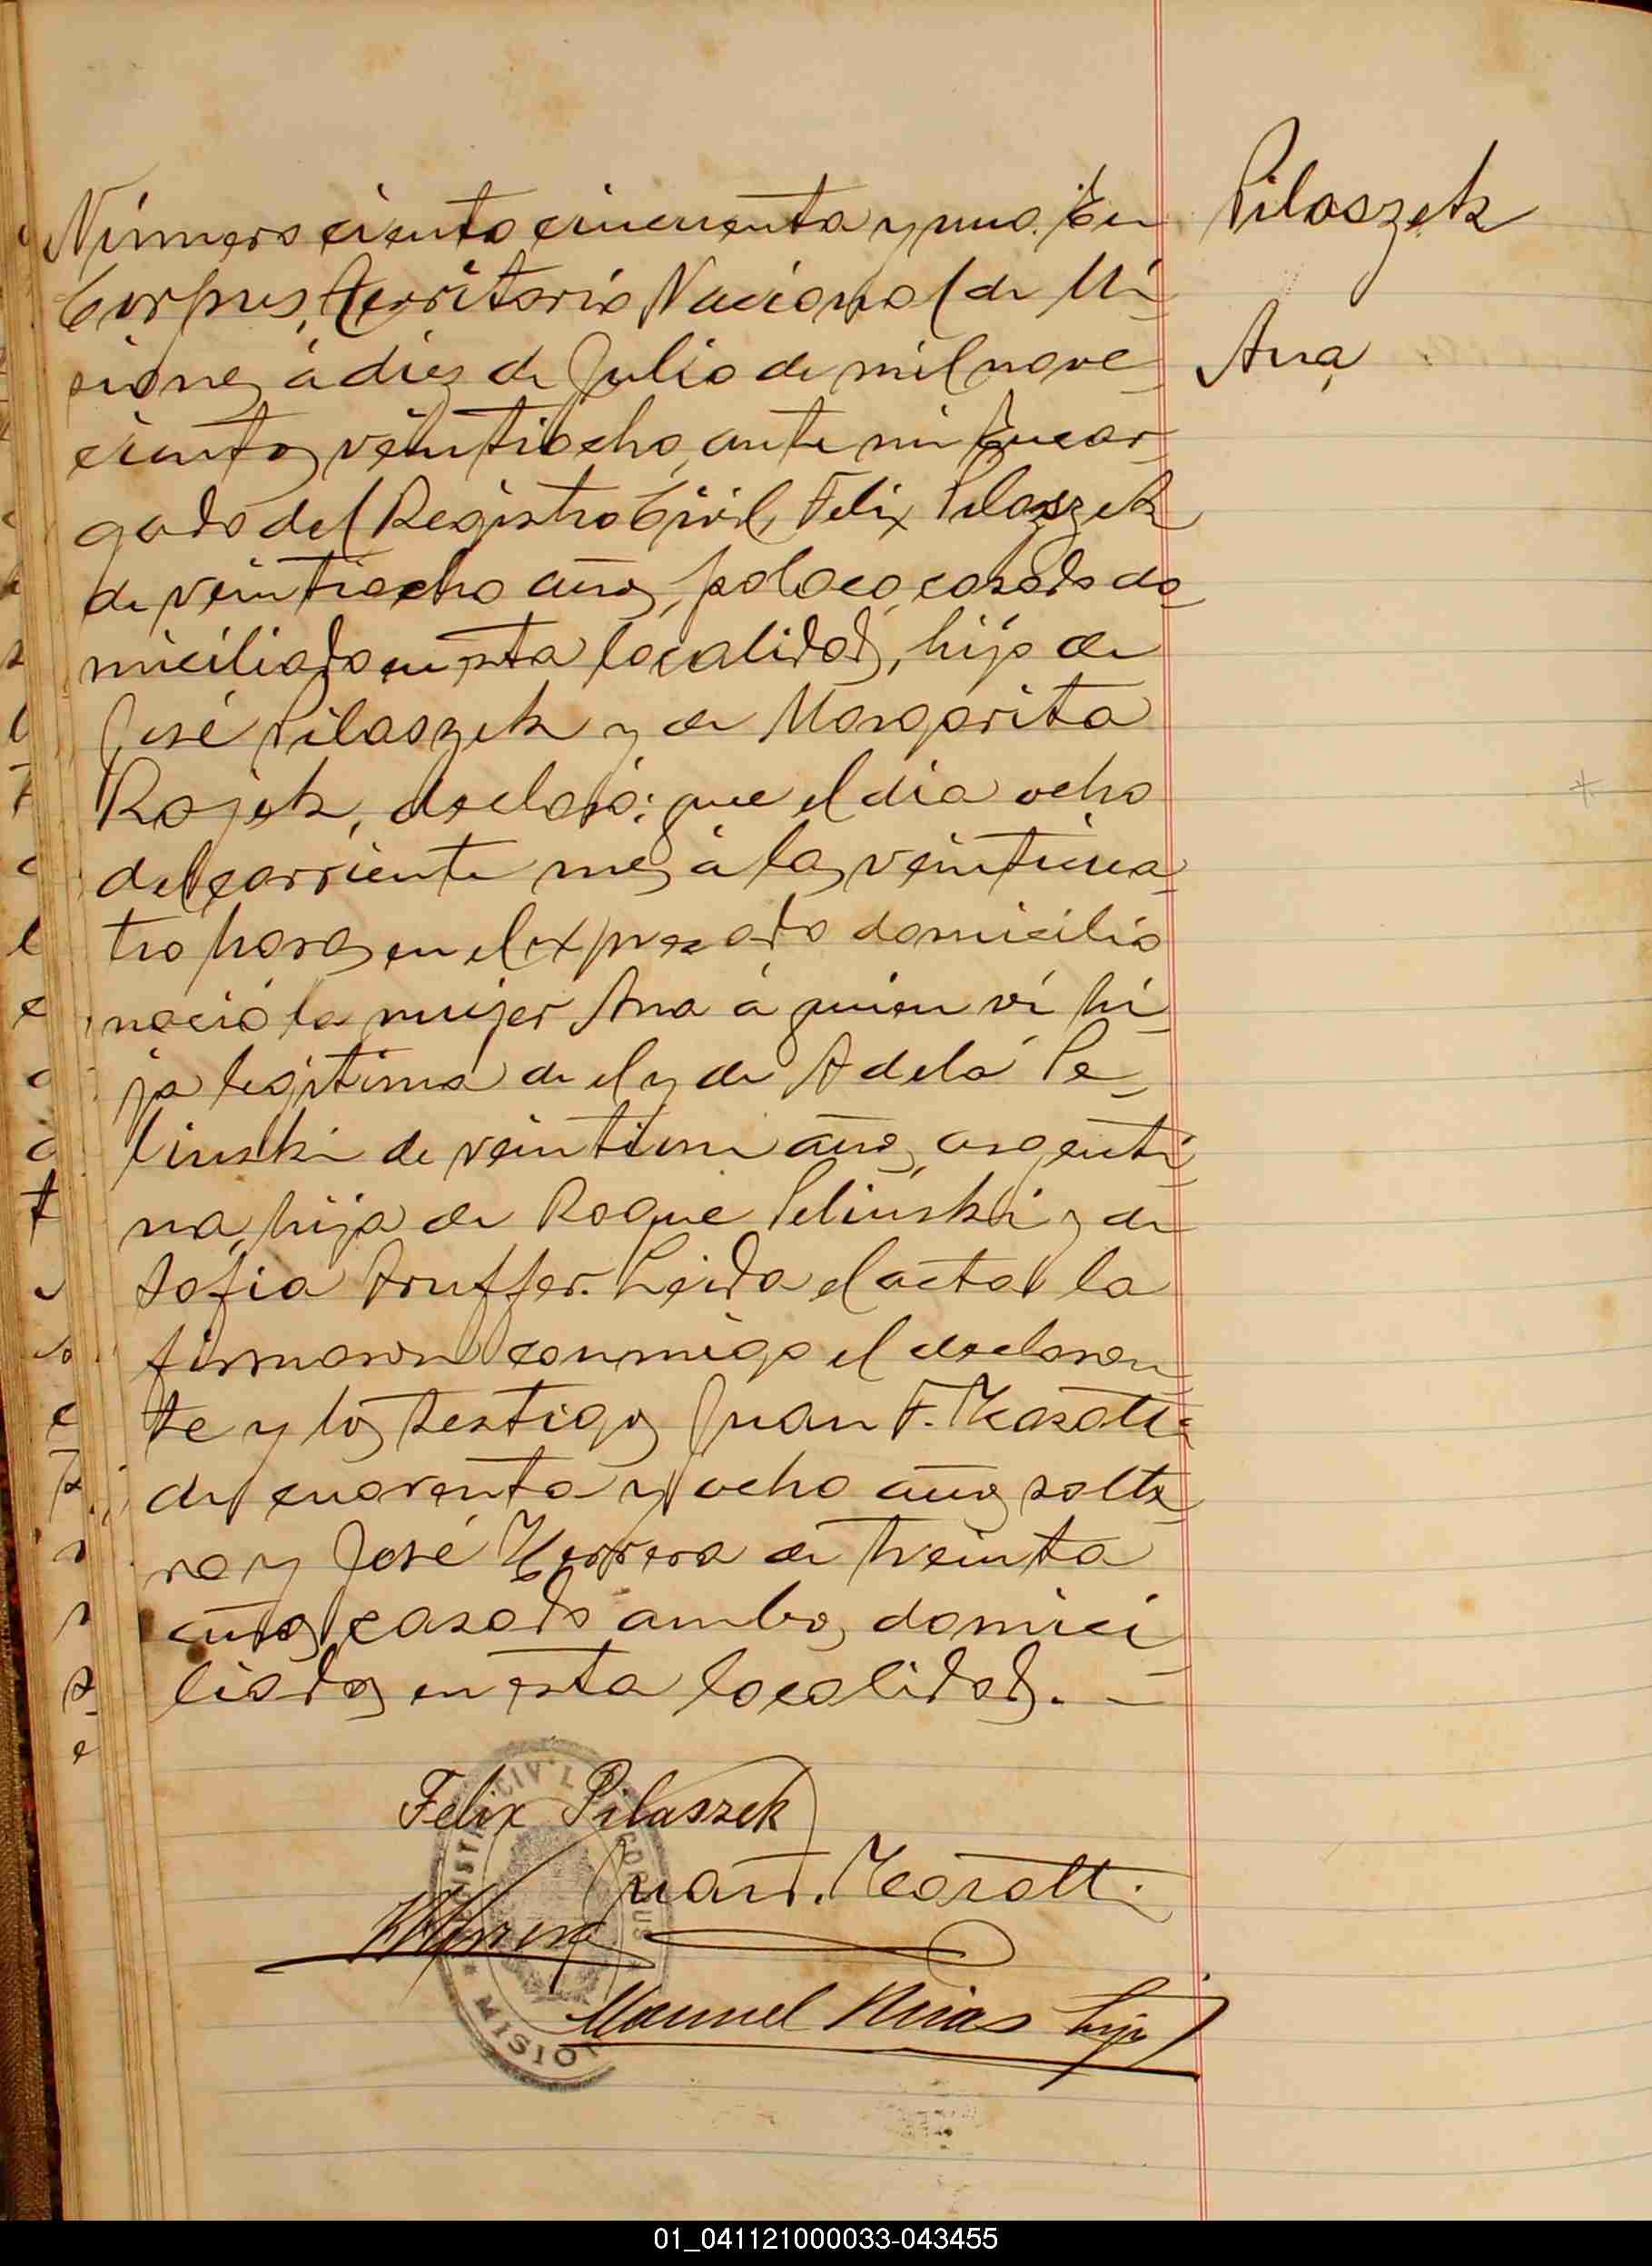 Número ciento cincuenta y uno. En
Corpus, Territorio Nacional de Mi_
siones, á diez de Julio de mil nove_
cientos veintiocho, ante mi Encar_
gado del Registro Civil, Felix Pilaszek
de veintiocho años, polaco, casado do_
miciliado en esta localidad, hijo de
José Pilaszek y de Margarita
Rojek, declaró: que el dia ocho
del corriente mes á las veinticua_
tro horas en el expresado domicilio
nació la mujer Ana á quien ví hi_
ja legitima de el y de Adela Pe_
linski de veintiun años, argenti_
na, hija de Roque Pelinski y de
Sofia Druffer. Leida el acta la
firmaron conmigo el declaran_
te y los testigos Juan F. Masotti
de cuarenta y ocho años solte_
ro y José Herrera de treinta
años casado ambos domici_
liados en esta localidad. _
Pilaszek
Ana
Felix Pilaszek
Juan F. Masotti
Herrera
Manuel hijo
CIVIL
CORPUS
MISIO
01_041121000033-043455